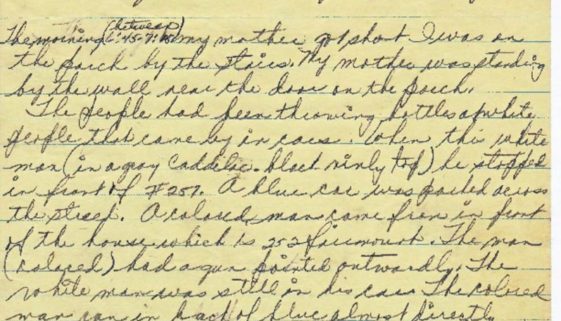 (between)
The morning 6:45-7:15 my mother got shot I was on
the porch by the stairs. My mother was standing
by the wall near the door on the porch.
The people had been throwing bottles at white
people that came by in cars. When this white
man (in a gray Caddelic. black vinly top) he stopped
in front of #257. A blue car was parked across
the street. A colored man came from in front
of the house which is 252 Fairmount. The man
(colored) had a gun pointed outwardly. The
white man was still in his car. The colored
man ran in back of blue almost directly